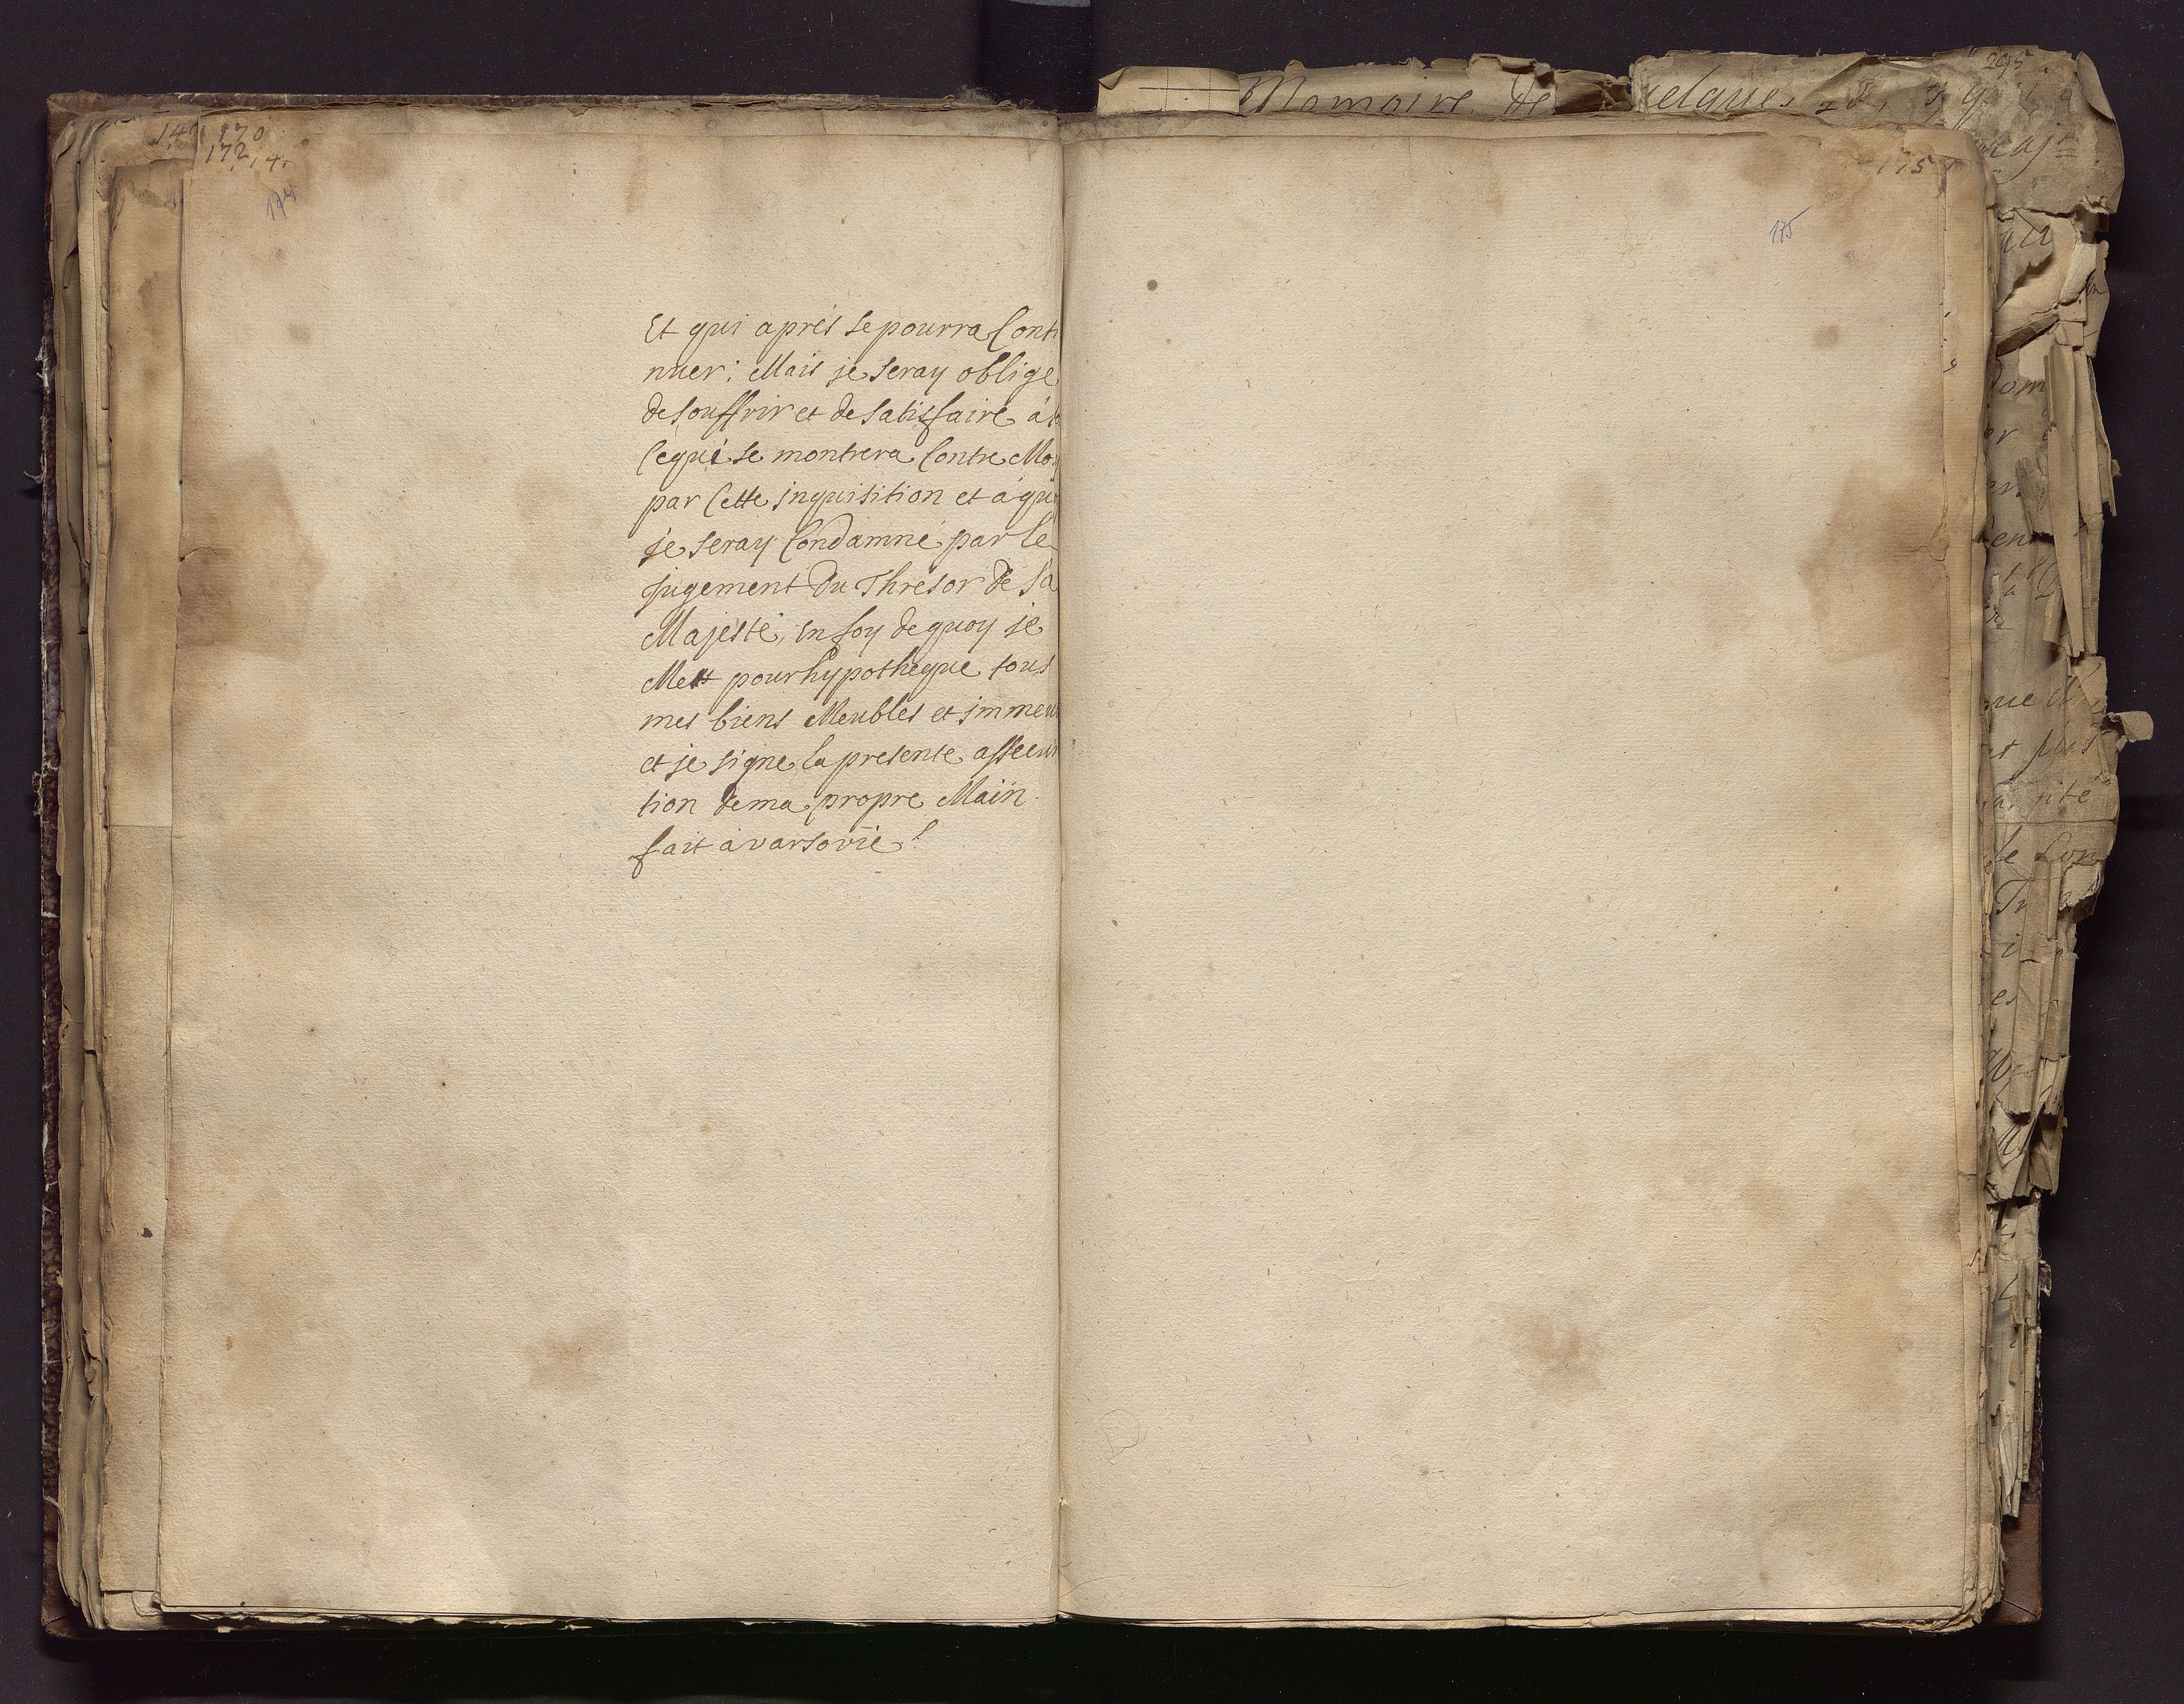 170
172, 4.
174
Et qui aprés se pourra Conti
nuer; Mais je seray oblige
de souffrir et de satisfaire á
Cequi se montrera Contre Moy
par Cette jnquisition et á quoy
je seray Condamné par le
jugement Du Thresor de sa
Majesté, en foy de quoy je
Mets pour hypotheque tous
mes biens Meubles et jmmeu
et je signe la presente asseura
tion de ma propre Main
fait á varsovie
175
175
Memoire de quelques